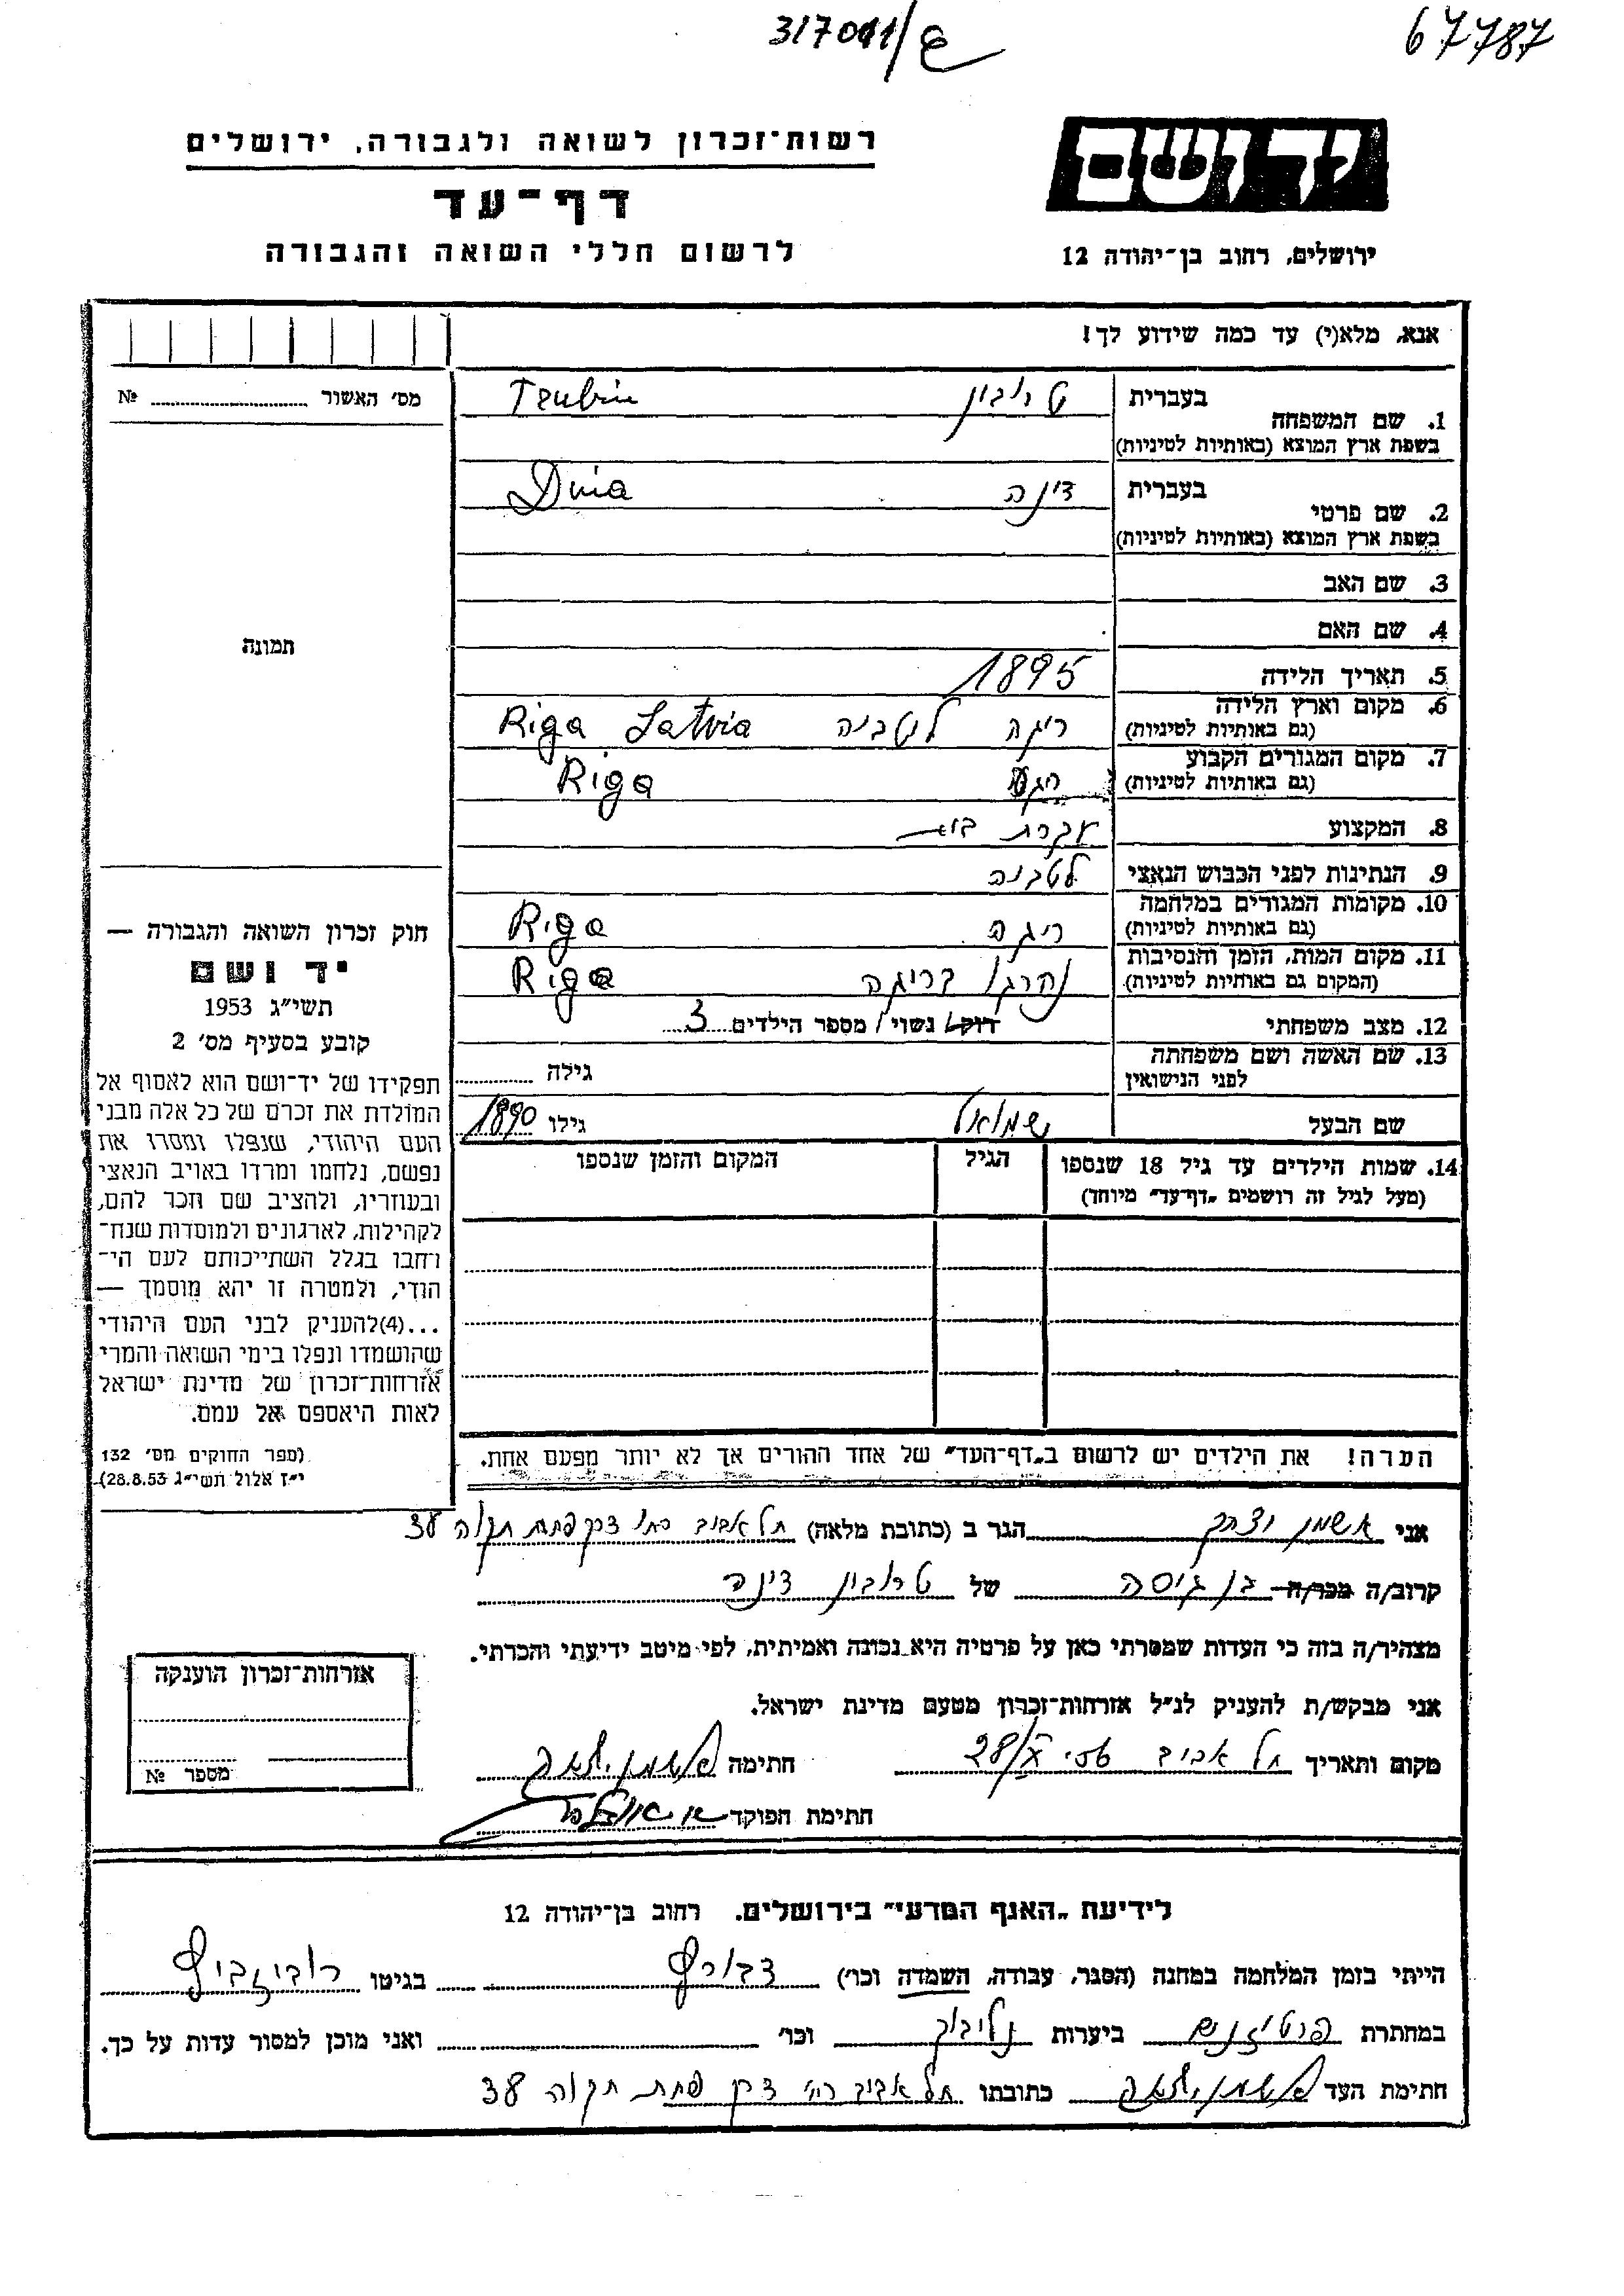 317011/פ
67787
רשות־זכרון לשואה ולגבורה, ירושלים
דף־עד
לרשום חללי השואה והגבורה
יד ושם
ירושלים, רחוב בן־יהודה 12
אנא, מלא(י) עד כמה שידוע לך!
מס' האשור № 
תמונה
1. שם המשפחה בעברית טרובין Trubin
בשפת ארץ המוצא (באותיות לטיניות)
2. שם פרטי בעברית דינה Dina
בשפת ארץ המוצא (באותיות לטיניות)
3. שם האב
4. שם האם
5. תאריך הלידה 1895
6. מקום וארץ הלידה ריגה לטביה Riga Latvia
(גם באותיות לטיניות)
7. מקום המגורים הקבוע Riga
(גם באותיות לטיניות)
8. המקצוע עקרת בית
9. הנתינות לפני הכבוש הנאצי לטביה
10. מקומות המגורים במלחמה ריגה Riga
(גם באותיות לטיניות)
11. מקום המות, הזמן והנסיבות נהרגו בריגה Riga
(המקום גם באותיות לטיניות)
12. מצב משפחתי רווק/ נשוי/ מספר הילדים 3
13. שם האשה ושם משפחתה גילה
לפני הנישואין
שם הבעל שמואל גילו 1890
14. שמות הילדים עד גיל 18 שנספו הגיל המקום והזמן שנספו
(מעל לגיל זה רושמים „דף־עד״ מיוחד)
חוק זכרון השואה והגבורה —
יד ושם
תשי״ג 1953
קובע בסעיף מס' 2
תפקידו של יד־ושם הוא לאסוף אל
המולדת את זכרם של כל אלה מבני
העם היהודי, שנפלו ומסרו את
נפשם, נלחמו ומרדו באויב הנאצי
ובעוזריו, ולהציב שם וזכר להם,
לקהילות, לארגונים ולמוסדות שנח־
רחבו בגלל השתייכותם לעם הי־
הודי, ולמטרה זו יהא מוסמך —
...(4)להעניק לבני העם היהודי
שהושמדו ונפלו בימי השואה והמרי
אזרחות־זכרון של מדינת ישראל
לאות היאספם אל עמם.
(ספר החוקים מס' 132
י״ז אלול תשי״ג 28.8.53)
הערה! את הילדים יש לרשום ב„דף־העד״ של אחד ההורים אך לא יותר מפעם אחת.
אני אשמן יצחק הגר ב (כתובת מלאה) תל אביב דרך פתח תקוה 38
קרוב/ה מכר/ה בן גיסה של טרובין דינה
מצהיר/ה בזה כי העדות שמסרתי כאן על פרטיה היא נכונה ואמיתית, לפי מיטב ידיעתי והכרתי.
אני מבקש/ת להעניק לנ״ל אזרחות־זכרון מטעם מדינת ישראל.
מקום ותאריך תל אביב 28/X חתימה אשמן יצחק
חתימת הפוקד
אזרחות־זכרון הוענקה
מספר №
לידיעת „האגף המדעי״ בירושלים. רחוב בן־יהודה 12
הייתי בזמן המלחמה במחנה (הסגר, עבודה, השמדה וכו') דבורץ בגיטו רוביזביץ
במחתרת פרטיזנים ביערות נליבוק וכו' ואני מוכן למסור עדות על כך.
חתימת העד אשמן יצחק כתובתו תל אביב רח' דרך פתח תקוה 38